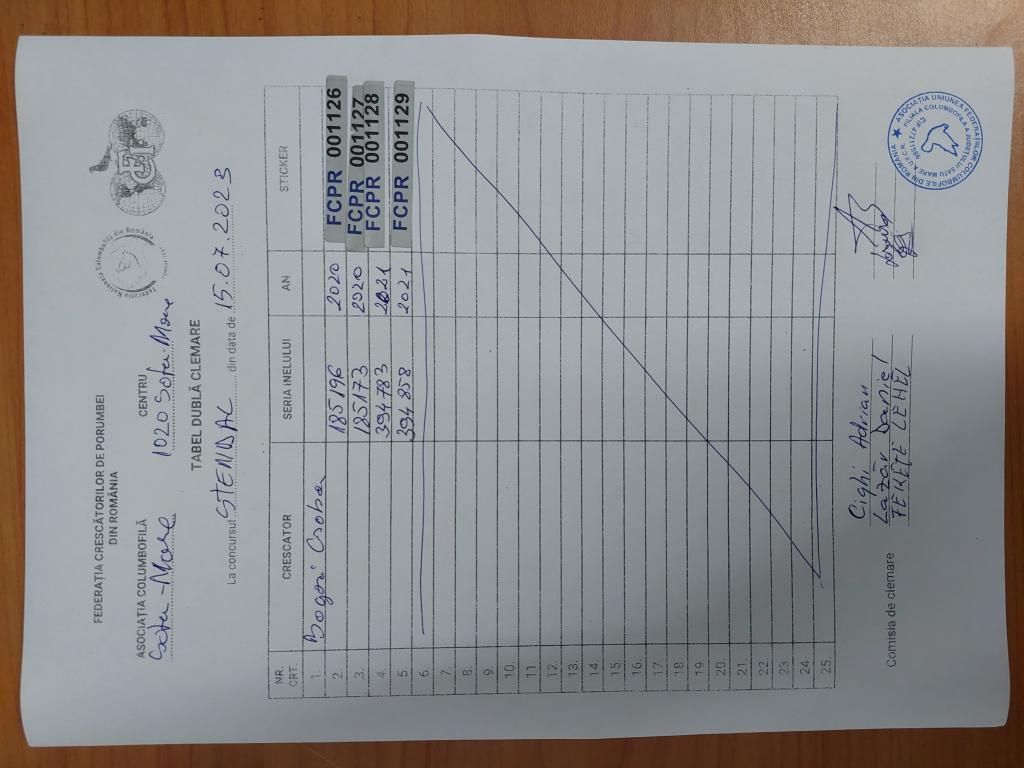 FEDERAȚIA CRESCĂTORILOR DE PORUMBEI
DIN ROMÂNIA
Federația Națională Columbofilă din România
ASOCIAȚIA COLUMBOFILĂ
CENTRU
Satu-Mare
1020 Satu-Mare
TABEL DUBLĂ CLEMARE
La concursul STENDAL din data de 15.07.2023
NR. CRT. CRESCATOR SERIA INELULUI AN STICKER
1. Bogozi Csoba
2. 185196 2020 FCPR 001126
3. 185173 2020 FCPR 001127
4. 394783 2021 FCPR 001128
5 394858 2021 FCPR 001129
6.
7.
8.
9.
10.
11
12.
13.
14.
15.
16.
17.
18.
19
20.
21.
22.
23.
24.
25.
Comisia de clemare
Cighi Adrian
Lazăr Daniel
FEKETE LEHEL
ASOCIAȚIA UNIUNEA FEDERAȚIILOR COLUMBOFILE DIN ROMÂNIA
U.F.C.R. FILIALA COLUMBOFILA A JUDEȚULUI SATU MARE